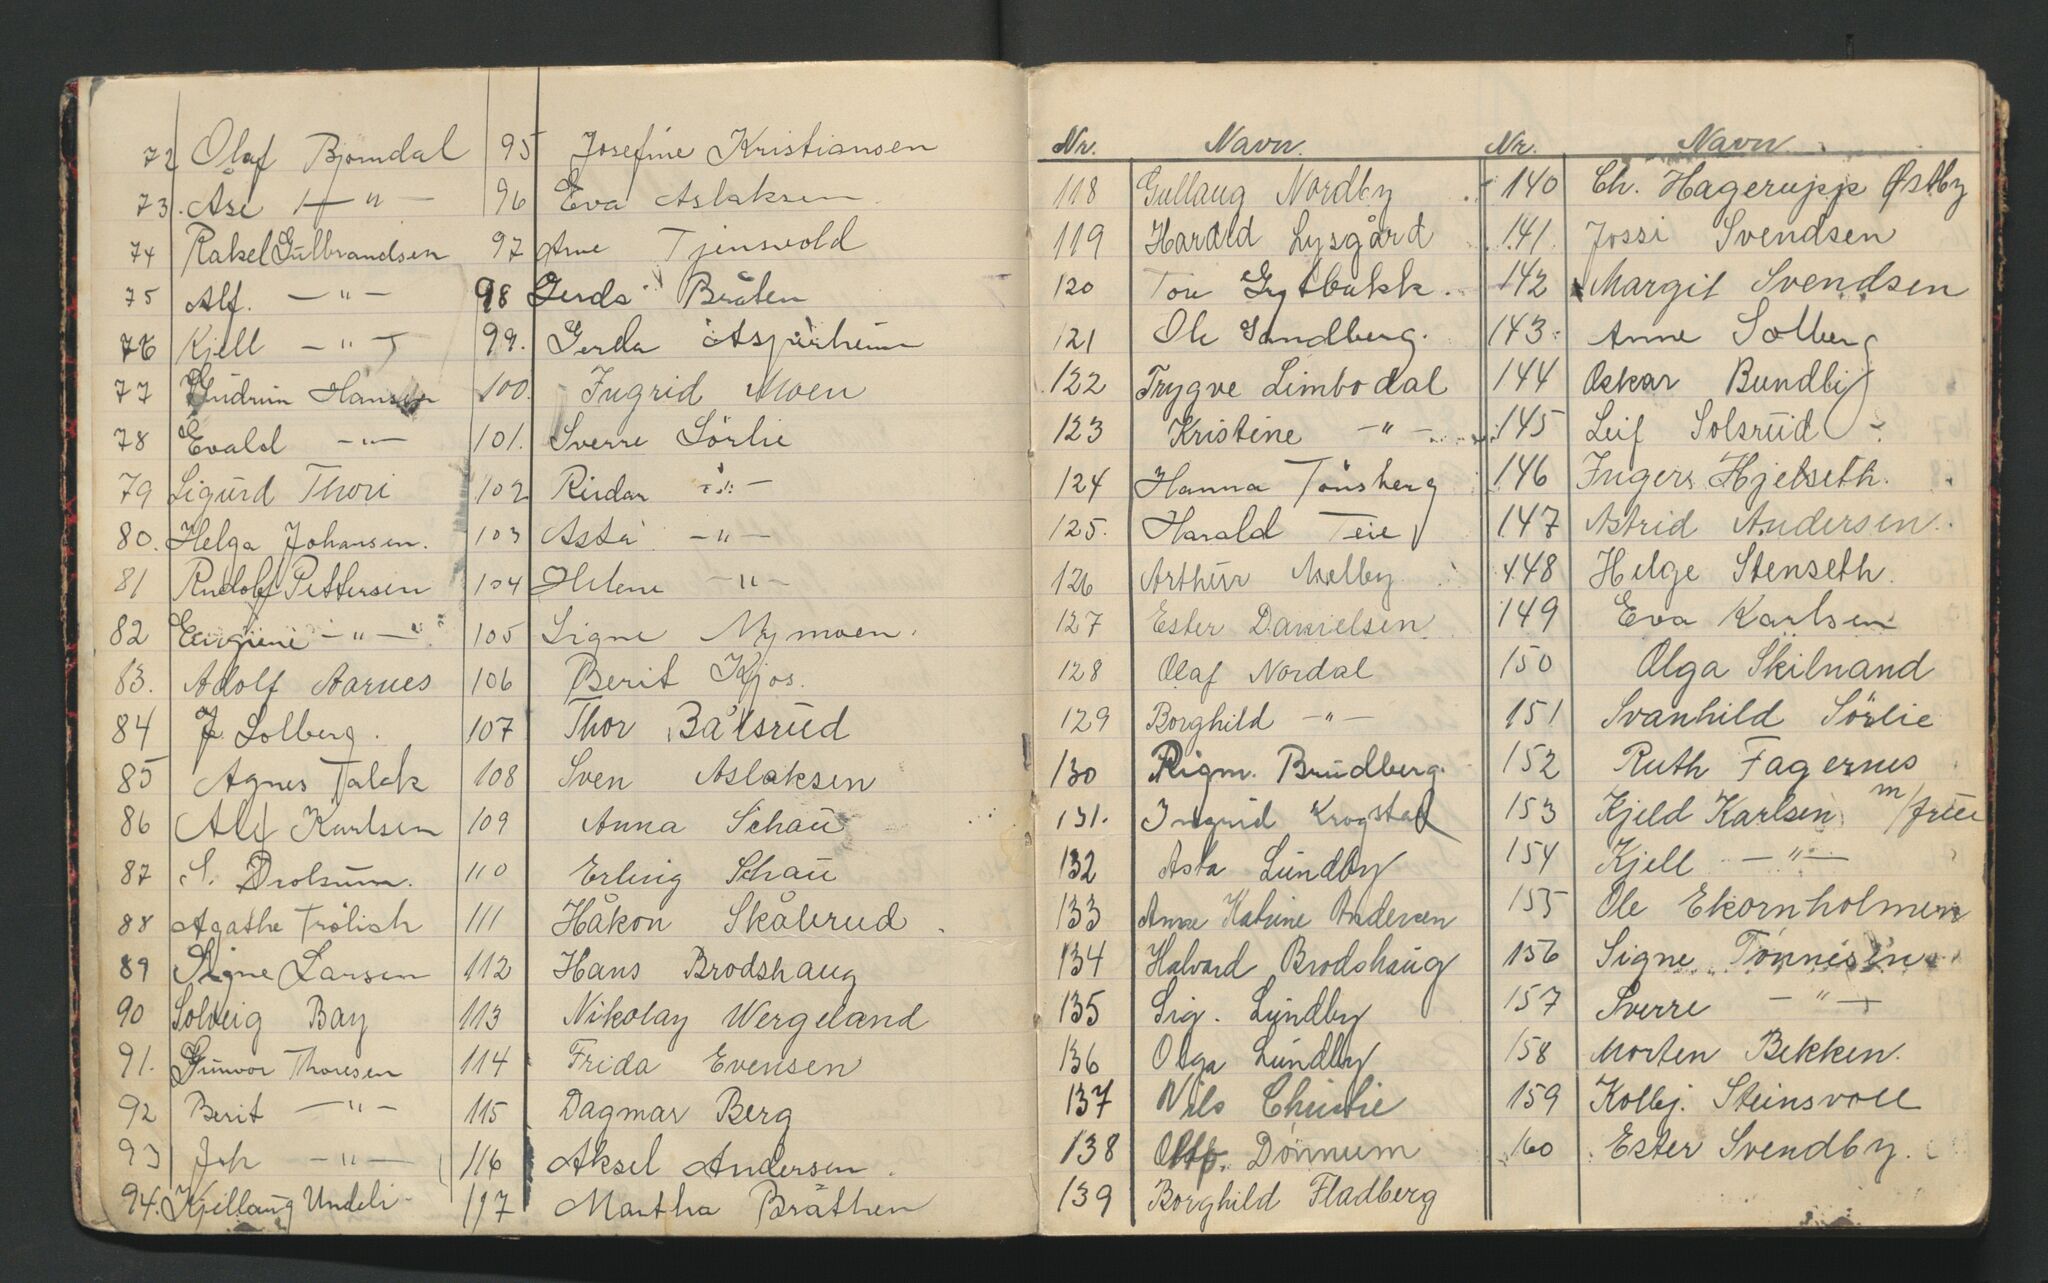 72 Olaf Bjørndal
73. Ase — " —
74 Rakel Gulbrandsen
75 Alf. — " —
76 Kjell — " —
77 Gudrun Hansen
78 Evald — " —
79 Sigurd Thori
80. Helga Johansen.
81 Rudolf Pettersen
82 — " —
83. Adolf Aarnes
84 J. Solberg.
85 Agnes Talak
86 Alf Karlsen
87 S. Drolsum.
88 Agathe Frölich
89 Signe Larsen
90 Solveig Bay
91. Gunvor Thoresen
92 Berit — " —
93 Joh — " —
94. Kjellaug Undeli
95 Josefine Kristiansen
96 Eva Aslaksen
97 Arne Tjensvold
98 Gerda Bråten
99. Gerda Aspurheim
100. Ingrid Moen
101. Sverre Sörlie
102 Reidar — " —
103 Asta — " —
104 Helene — " —
105 Signe Mymoen.
106 Berit Kjos.
107 Thor Bålsrud
108 Sven Aslaksen
109 Anna Schau
110 Erling Schau
111 Håkon Skålerud.
112 Hans Brodshaug
113 Nikolay Wergeland
114 Frida Evensen
115 Dagmar Berg
116 Aksel Andersen.
117 Martha Bråthen
Nr. Navn.
118 Gullaug Nordby
119 Harald Lysgård
120 Tore Grytbakk.
121 Ole Sandberg.
122 Trygve Limbodal
123 Kristine — " —
124 Hanna Tönsberg
125. Harald Teie
126 Arthur Melby
127 Ester Danielsen
128 Olaf Nordal
129 Borghild — " —
130 Rigm. Brudberg.
131. Ingrid Krogstad
132 Asta Lundby
133 Anne Katrine Andersen
134 Halvard Brodshaug
135 Sig. Lundby
136 Olga Lundby
137 Nils Christie
138 Dønnum
139 Borghild Fladberg
Nr. Navn.
140 Ch. Hagerupp Østby
141. Jossi Svendsen
142 Margit Svendsen
143. Anne Solberg
144 Oskar Bundby
145 Leif Solsrud
146 Inger Hjelseth.
147 Astrid Andersen.
148 Helge Stenseth.
149 Eva Karlsen
150 Olga Skilnand
151 Svanhild Sörlie
152 Ruth Fagernes
153 Kjeld Karlsen m/frue
154 Kjell — " —
155 Ole Ekornholmen
156 Signe Tønnesen
157 Sverre — " —
158 Morten Bekken.
159 Kolbj. Steinsvoll
160 Ester Svendby.